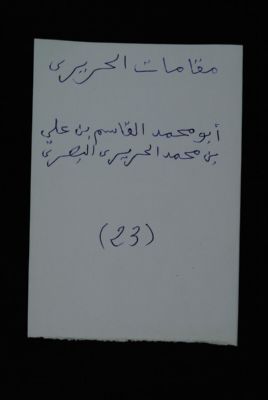 مقامات الحريرى
أبو محمد القاسم بن علي
بن محمد الحريرى البصرى
(23)